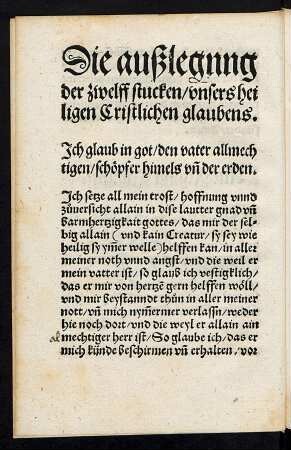 Die außlegung
der zwelff stucken/vnsers hei
ligen Cristlichen glaubens.
Ich glaub in got/den vater allmech
tigen/schöpfer himels vñ der erden.
Ich setze all mein trost/hoffnung vnnd
zůuersicht allain in dise lautter gnad vñ
barmhertzigkait gottes/das mir der sel-
big allain (vnd kain Creatur/sy sey wie
heilig sy ymer welle) helffen kan/in aller
meiner noth vnnd angst/vnd die weil er
mein vatter ist/so glaub ich vestigklich/
das er mir von hertzē gern helffen wöll/
vnd mir beystanndt thůn in aller meiner
nott/vñ mich nymermer verlassn/weder
hie noch dort/vnd die weyl er allain ain
mechtiger herr ist/So glaube ich/das er
mich künde beschirmen vñ erhalten/vor